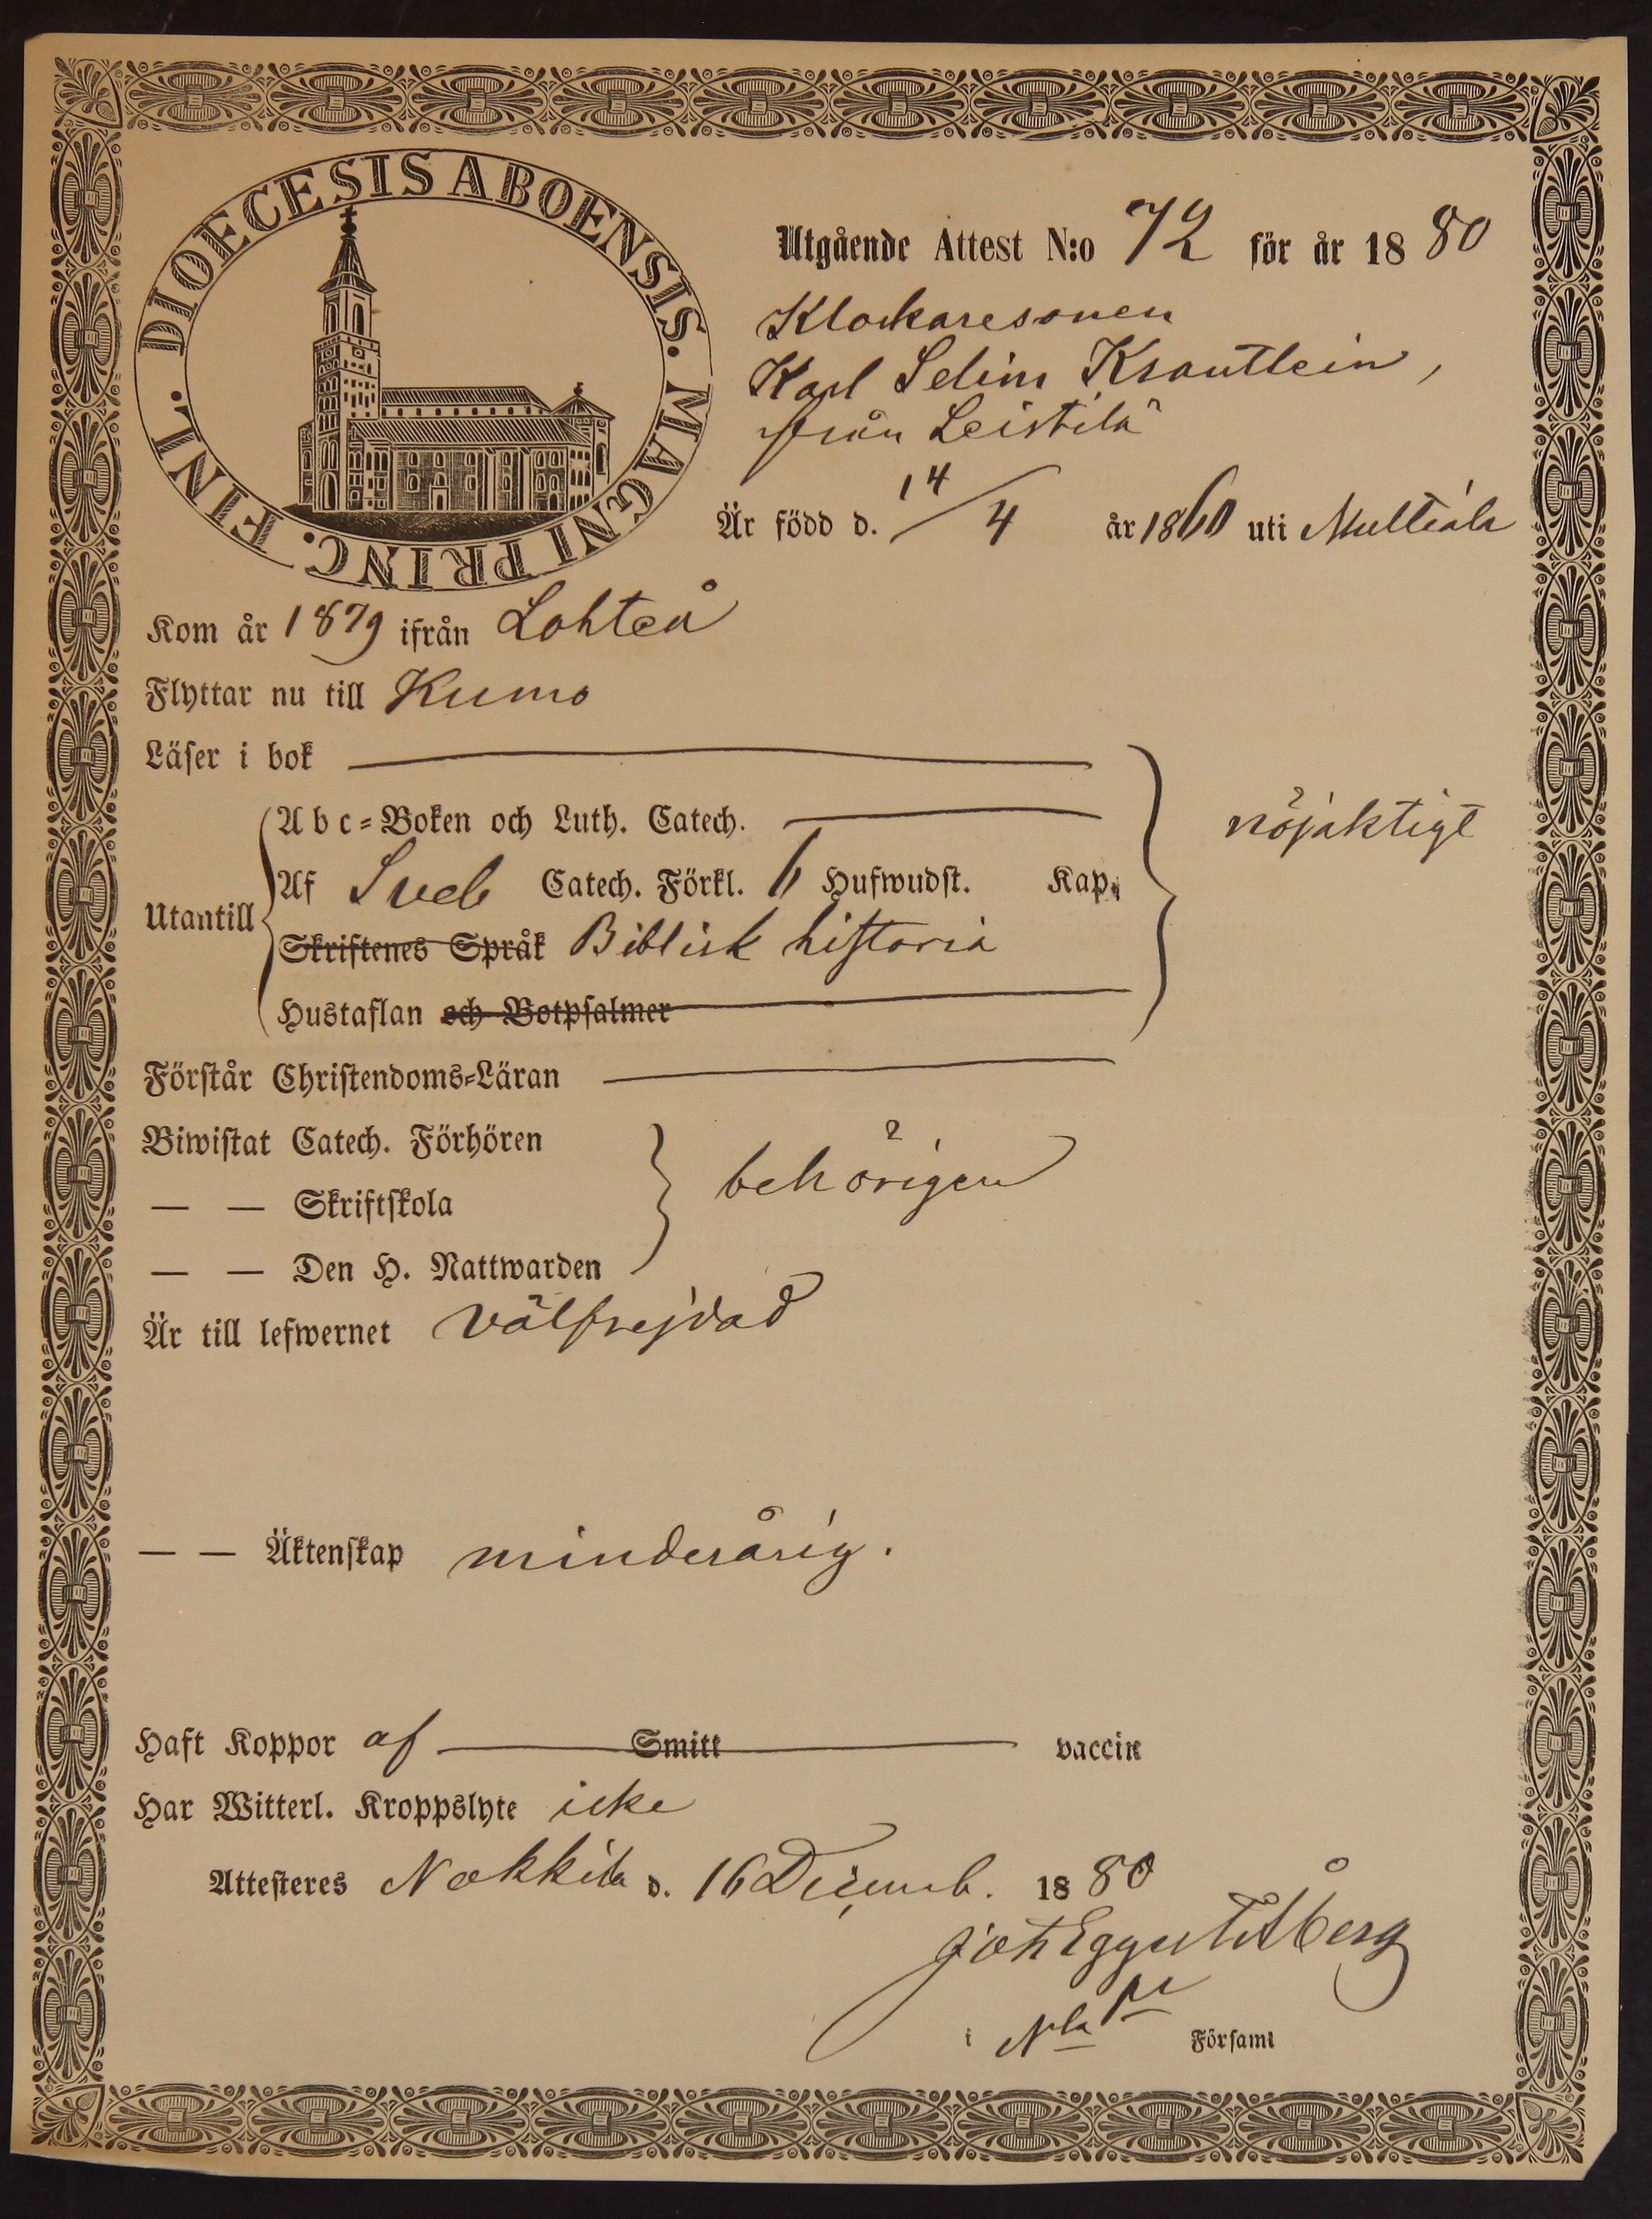 DIOECESIS ABOENSIS. MAGNI PRINC. FINL.
Utgående Attest N:o 72 för år 1880
Klockaresonen
Karl Selim Krautlein,
från Leistilä
Är född d. 14/4 år 1860 uti Multiala
Kom år 1879 ifrån Lohteå
Flyttar nu till Kumo
Läser i bok
Abc=Boken och Luth. Catech.
nöjaktigt
Utantill
Af Sveb Catech. Förkl. 6 Hufwudst. Kap.
Skriftenes Språk Biblisk historia
Hustaflan och Botpsalmer
Förstår Christendoms=Läran
Biwistat Catech. Förhören
— — Skriftskola
behörigen
— — Den H. Nattwarden
Är till lefwernet välfrejdad
— — Äktenskap minderårig.
Haft Koppor af Smitt vaccin
Har Witterl. Kroppslyte icke
Attesteres Nakkila d. 16 Decemb. 1880
Joh Eggert Åberg
i Nla Församl